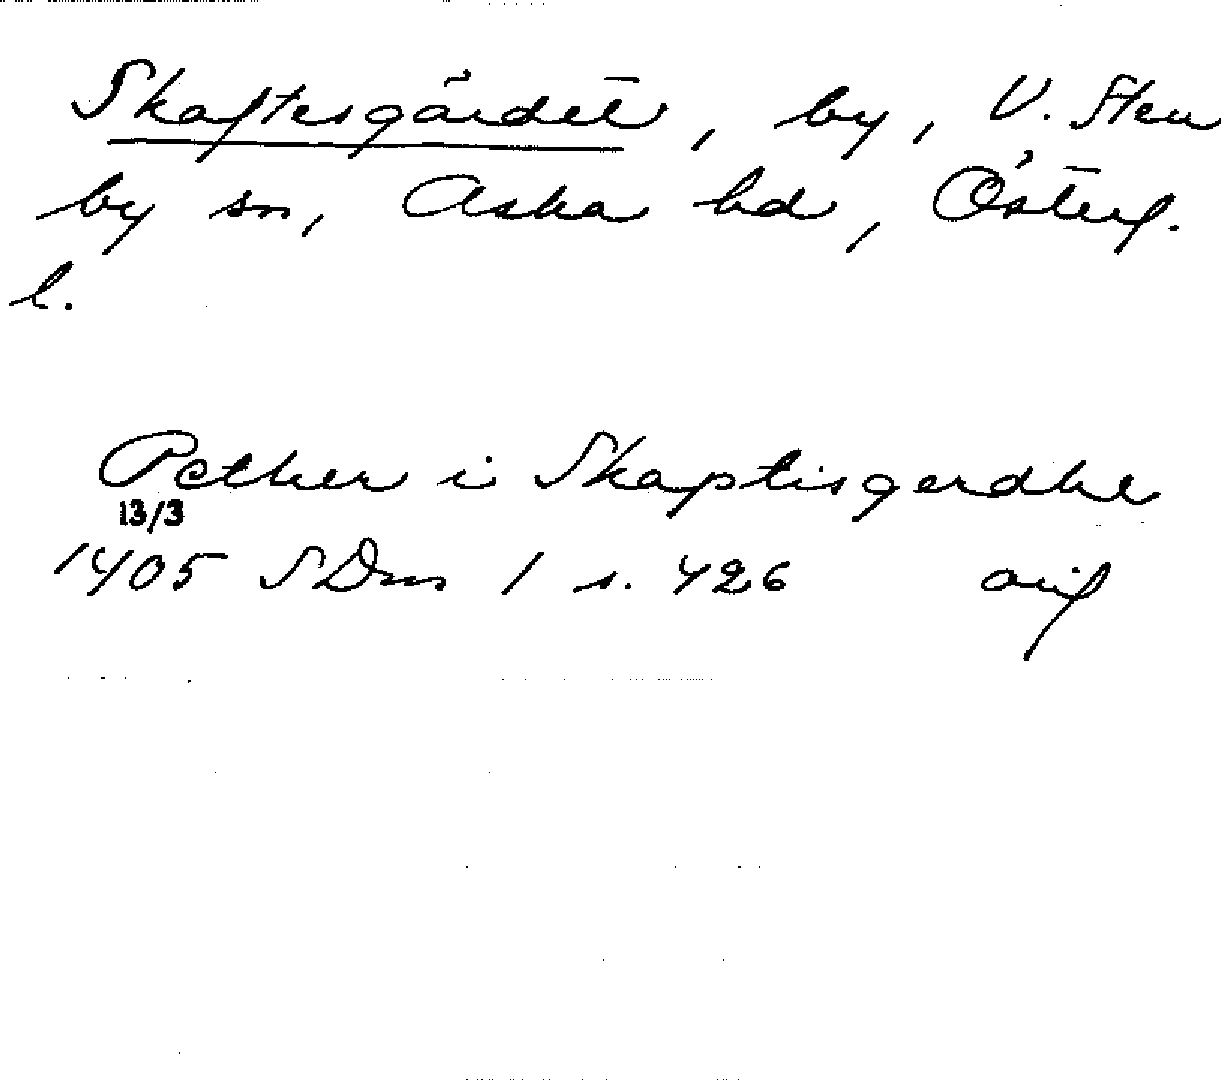 Skaftesgärdet, by, V. Sten
by sn, Aska hd, Österg.
l.
Pether i Skaptisgerdhe
13/3
1405 SDns 1 s. 426 orig